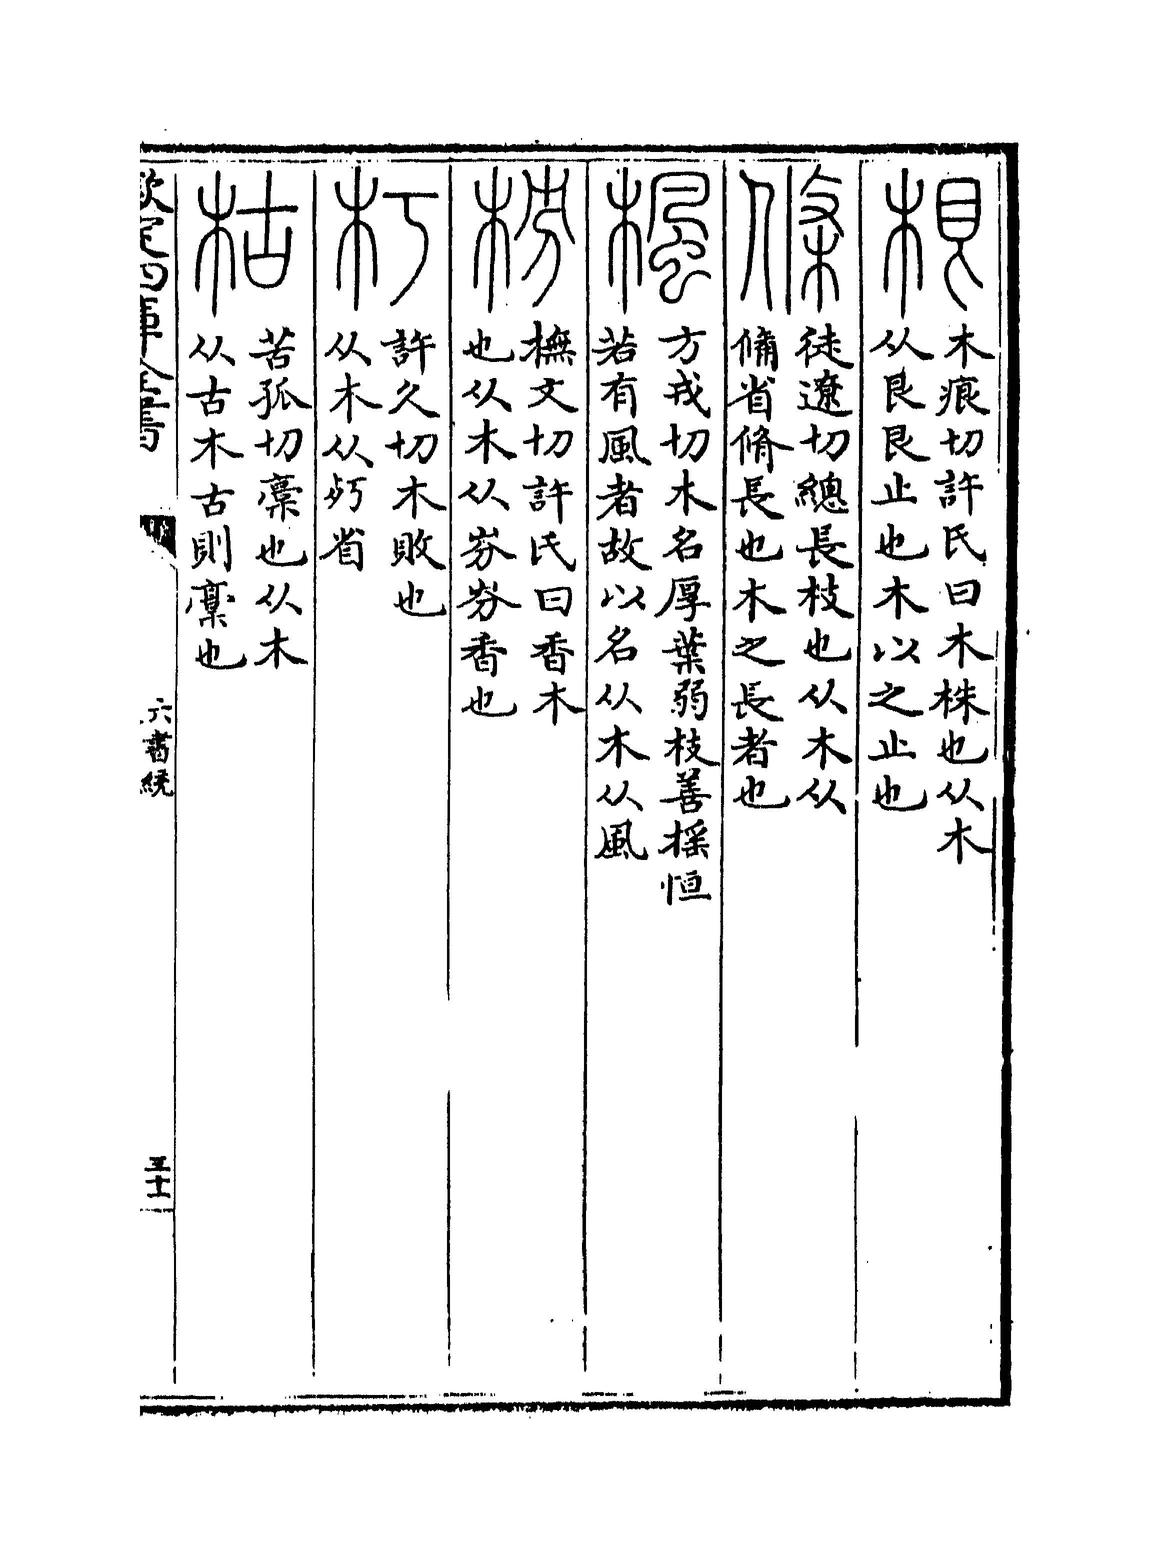 根
木痕切許氏曰木株也从木
从艮艮止也木以之止也
條
徒遼切總長枝也从木从
脩省脩長也木之長者也
楓
方戎切木名厚葉弱枝善揺恒
若有風者故以名从木从風
梤
撫文切許氏曰香木
也从木从岎岎香也
朽
許久切木敗也
从木从㱙省
枯
苦孤切㯱也从木
从古木古則㯱也
欽定四庫全書
六書統
五十